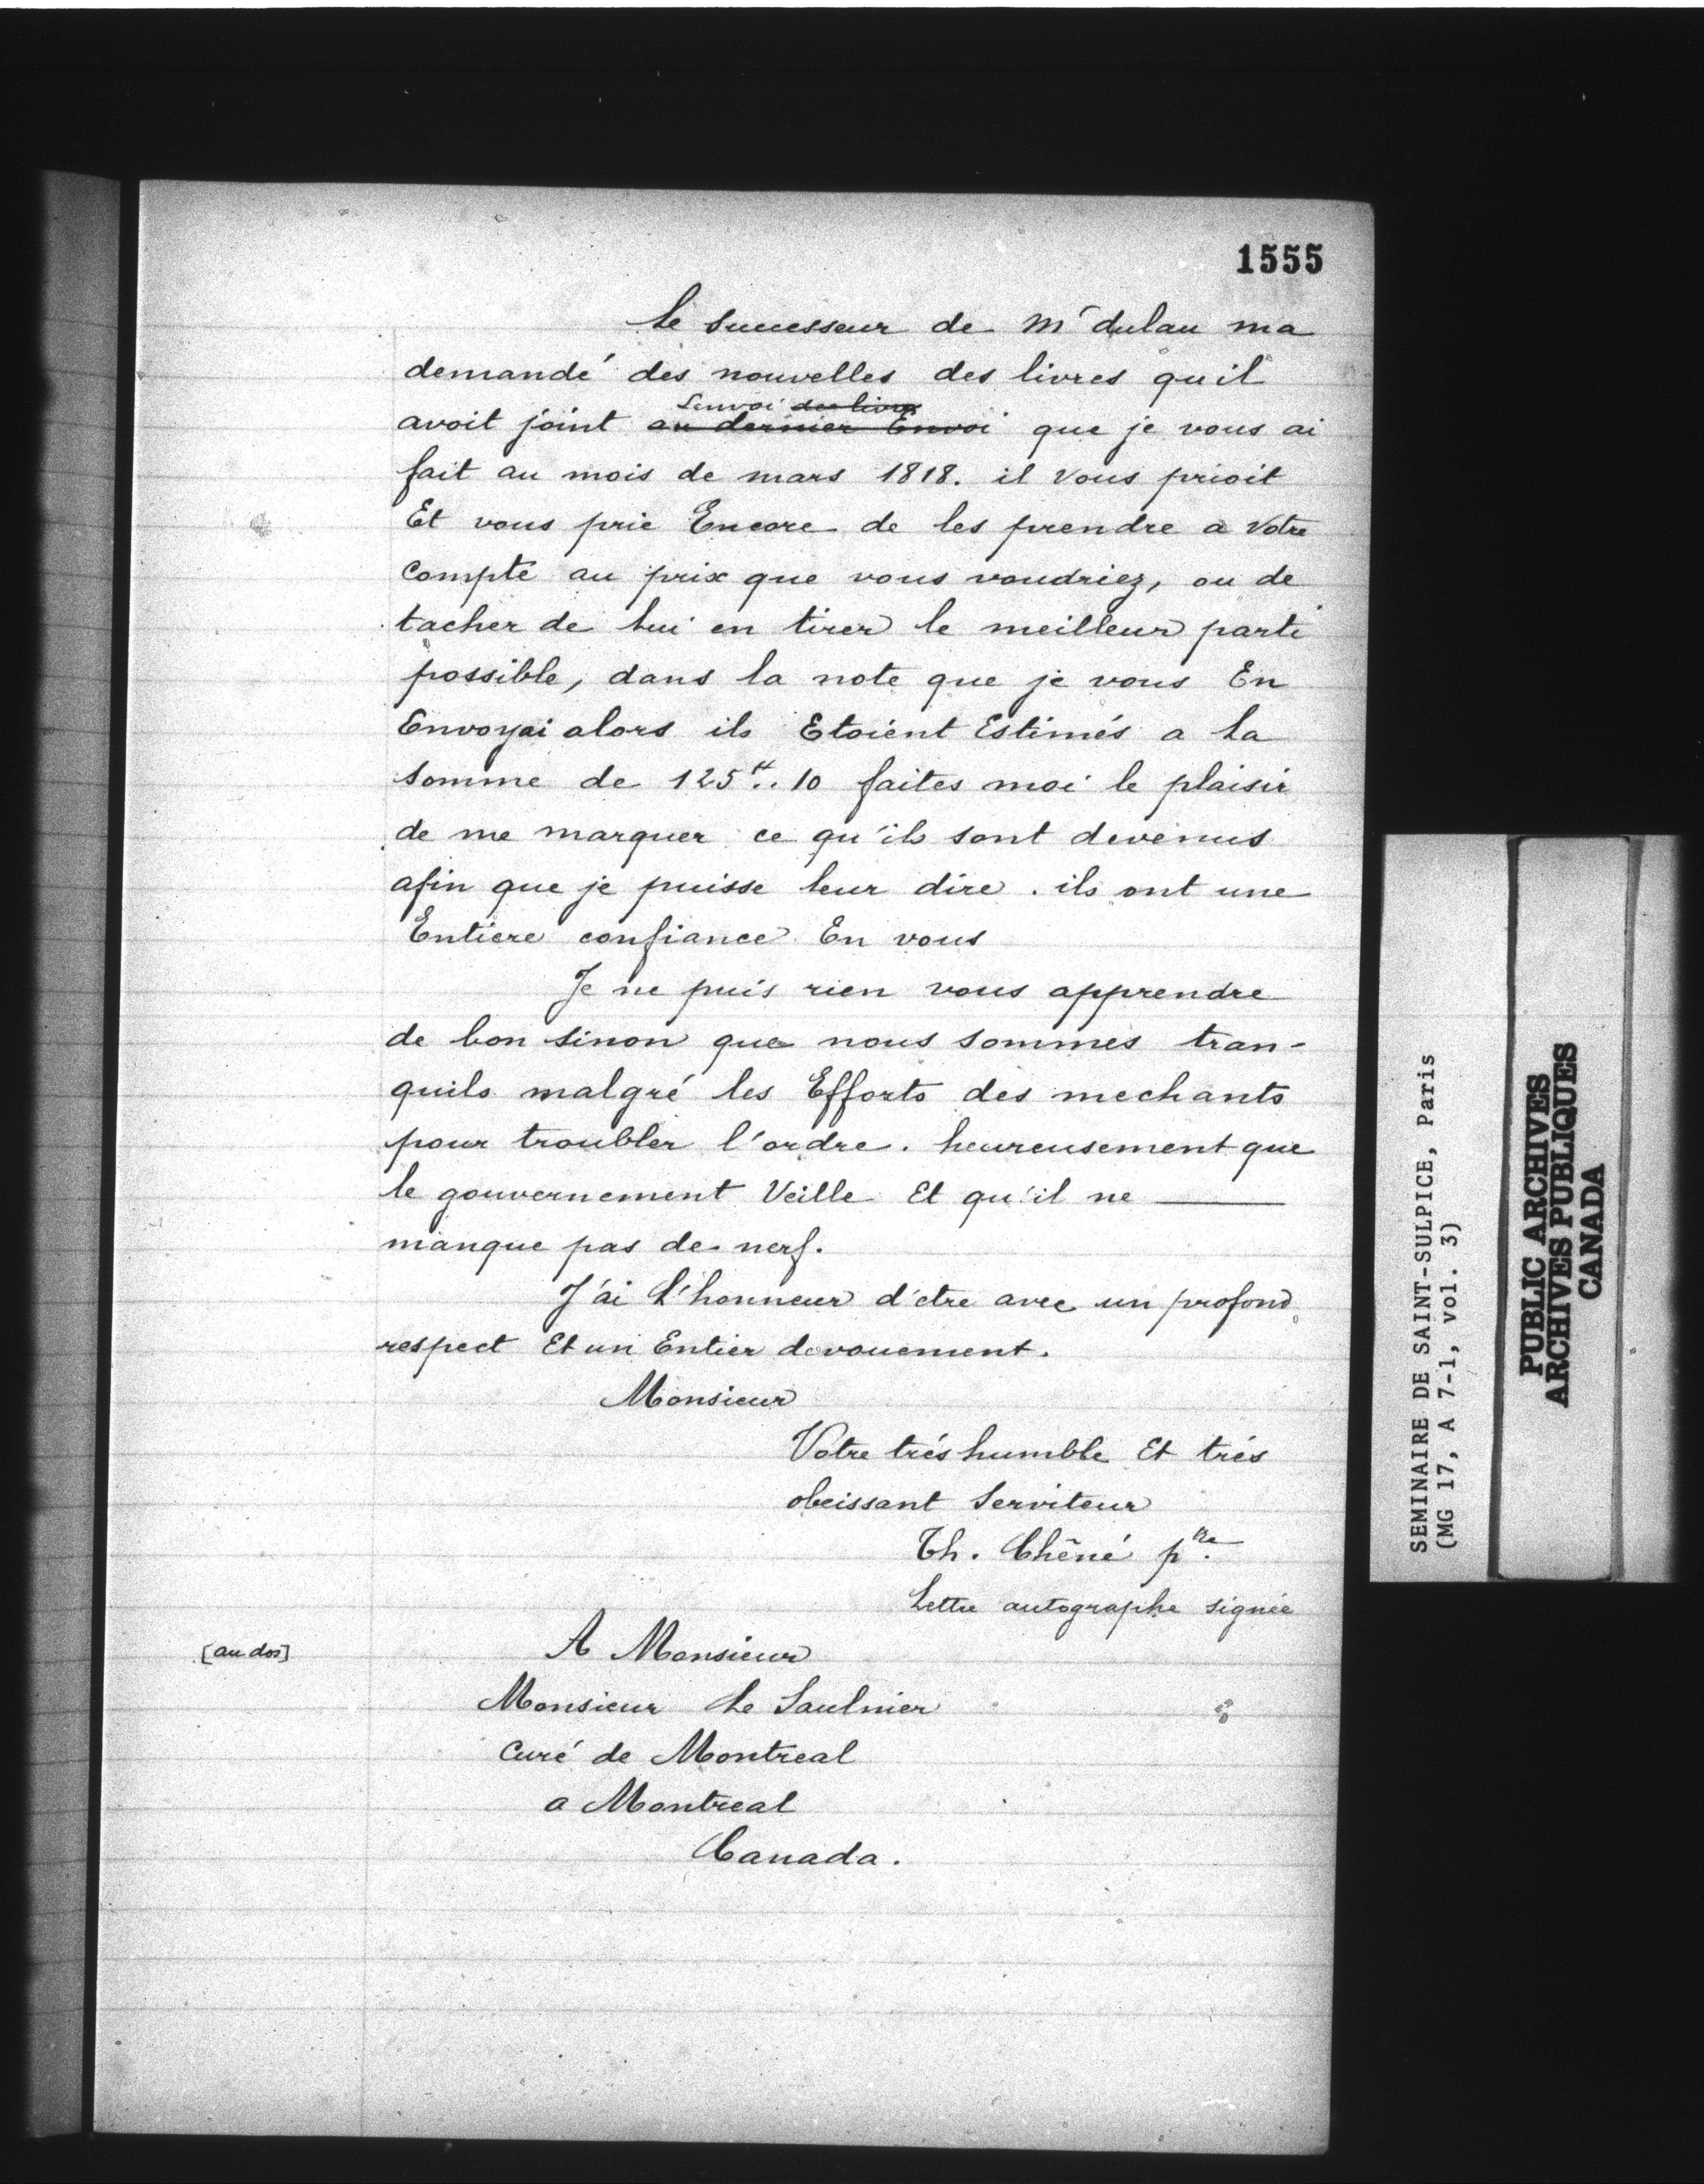 1555
Le successeur de Mr dulau ma
demandé des nouvelles des livres quil
Lenvoi des livres
avoit joint au dernier Envoi que je vous ai
fait au mois de mars 1818. il vous prioit
Et vous prie Encore de les prendre a votre
compte au prix que vous voudriez, ou de
tacher de lui en tirer le meilleur parti
possible, dans la note que je vous En
Envoyai alors ils Etoient Estimés a la
somme de 125tt..10 faites moi le plaisir
de me marquer ce qu'ils sont devenus
afin que je puisse leur dire. ils ont une
Entiere confiance En vous
Je ne puis rien vous apprendre
de bon sinon que nous sommes tran-
quils malgré les Efforts des mechants
pour troubler l'ordre. heureusement que
le gouvernement Veille Et qu'il ne
manque pas de nerf.
J'ai L'honneur d'etre avec un profond
respect Et un Entier devouement.
Monsieur
Votre trés humble Et trés
obeissant Serviteur
Th. Chêné ptre.
Lettre autographe signée
[au dos] A Monsieur
Monsieur Le Saulnier
Curé de Montreal
a Montreal
Canada.
SEMINAIRE DE SAINT-SULPICE, Paris
(MG 17, A 7-1, vol. 3)
PUBLIC ARCHIVES
ARCHIVES PUBLIQUES
CANADA